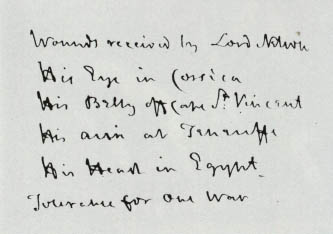 Wounds received by Lord Nelson
His Eye in Corsica
His Belly off Cape St. Vincent
His arm at Teneriffe
His Head in Egypt
for one War